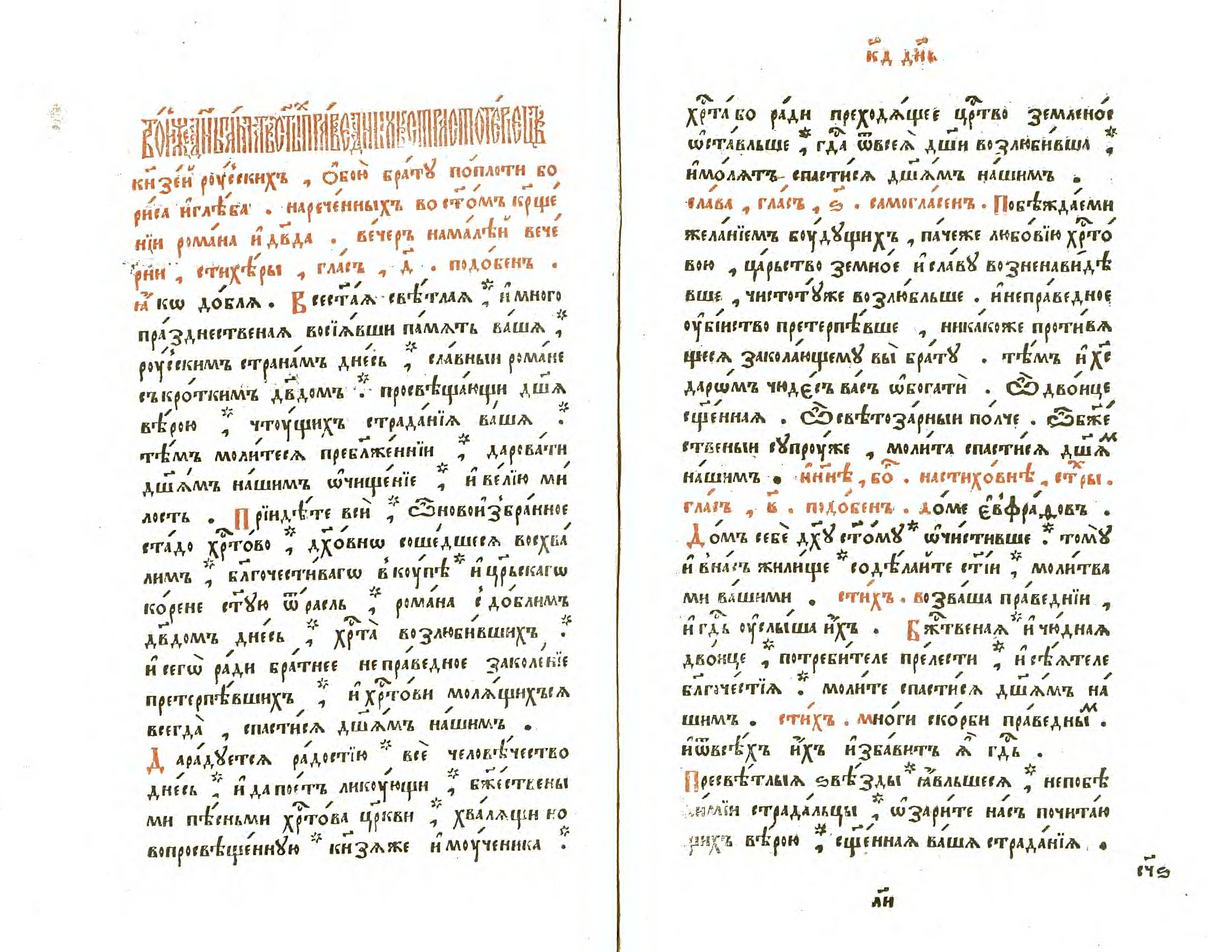 кнзе́й роу́сскихъ , ѻ҆бою̀ бра́тꙋ попло́ти бо
ри́са и҆глѣ́ба . нарече́нныхъ во ст҃о́мъ кр҃ще́
нїи рома́на и҆ дв҃да . ве́черъ нама́лѣй вече́
рни , стихѣ́ры , гла́съ , д҃ . подо́бенъ .
ꙗ҆́кѡ до́блѧ . Всеста́ѧ свѣ́тлаѧ ⁘ и҆ мно́го
пра́зднественаѧ восїѧ́вши па́мѧть ва́шѧ ⁘
роу́сскимъ страна́мъ дне́сь ⁘ сла́вныи рома́не
съкро́ткимъ дв҃домъ ⁘ просвѣща́ющи дш҃ѧ
вѣ́рою ⁘ чтоу́щихъ страда́нїѧ ва́шѧ ⁘
тѣ́мъ моли́тесѧ пребл҃же́ннїи ⁘ дарова́ти
дш҃ѧ́мъ на́шимъ ѡ҆чище́нїе ⁘ и҆ ве́лїю ми́
лость . Прїидѣ́те всѝ ⁘ ѽновои҆збра́нное
ста́до хр҃то́во ⁘ дх҃о́внѡ соше́дшесѧ восхва́
лимъ ⁘ бл҃гочести́вагѡ вкоу́пѣ ⁘ и҆ цр҃ьскагѡ
ко́рене ст҃ꙋю ѿ́расль ⁘ рома́на с до́блимъ
дв҃домъ дне́сь ⁘ хр҃та̀ возлюби́вшихъ ⁘
и҆ сегѡ̀ ра́ди бра́тнее непра́ведное заколе́нїе
претерпѣ́вшихъ ⁘ и҆ хр҃то́ви молѧ́щихъсѧ
всегда̀ , спасти́сѧ дш҃ѧ́мъ на́шимъ .
Дара́дꙋетсѧ ра́достїю ⁘ всѐ человѣ́чество
дне́сь ⁘ и҆ да пое́тъ ликоу́ющи ⁘ бж҃е́ствены
ми пѣ́сньми хр҃то́ва цр҃кви ⁘ хва́лѧщи но
вопросвѣще́ннꙋю ⁘ кнѧ́зѧже и҆ моу́ченика ⁘
к҃д дн҃ь
хр҃та́бо ра́ди преходѧ́щее цр҃тво земле́ное
ѡ҆ста́вльше ⁘ гд҃а ѿвсеѧ̀ дш҃и возлюби́вша ⁘
и҆мо́лѧтъ спасти́сѧ дш҃ѧ́мъ на́шимъ .
сла́ва , гла́съ , ѕ҃ . самогла́сенъ . Побѣжда́еми
жела́нїемъ боу́дꙋщихъ , па́чеже любо́вїю хр҃то́
вою , ца́рьство земно́е и҆ сла́вꙋ возненави́дѣ
вше , чистотꙋ́же возлю́бльше . и҆непра́ведное
оу҆бі́йство претерпѣ́вше , ника́коже проти́вѧ
щесѧ закола́ющемꙋ вы̀ бра́тꙋ . тѣ́мъ и҆ хс҃
да́рѡмъ чюде́съ ва́съ ѡ҆богатѝ . Ѽ дво́ице
сщ҃е́ннаѧ . Ѽ свѣтоза́рныи по́лче . Ѽ бж҃е́
ственыи сꙋпроу́же , моли́та спасти́сѧ дш҃ѧ́м
на́шимъ . и҆ ны́нѣ , бо҃ . настихо́внѣ , ст҃ры .
гла́съ , в҃ . подо́бенъ . до́ме є҆вфра́ѳовъ .
До́мъ себѐ дх҃ꙋ ст҃о́мꙋ ⁘ ѡ҆чи́стивше ⁘ томꙋ̀
и҆ вна́съ жили́ще ⁘ содѣ́лайте ст҃і́и ⁘ моли́тва
ми ва́шими . сти́хъ . возва́ша пра́веднїи ,
и҆ гд҃ь оу҆слы́ша и҆́хъ . Бж҃твенаѧ ⁘ и҆ чю́днаѧ
дво́ице ⁘ потреби́теле пре́лести ⁘ и҆ сѣ́ѧтеле
бл҃гоче́стїѧ ⁘ моли́те спасти́сѧ дш҃ѧ́мъ на́
шимъ . сти́хъ . мно́ги ско́рби пра́ведным .
и҆ ѿвсѣ́хъ и҆́хъ и҆зба́витъ ѧ҆̀ гд҃ь .
Пресвѣ́тлыѧ ѕвѣ́зды ⁘ ꙗ҆́вльшесѧ ⁘ непобѣ
страда́льцы ⁘ ѡ҆зари́те на́съ почита́ю
щихъ вѣ́рою ⁘ сщ҃е́ннаѧ ва́шѧ страда́нїѧ .
сч҃ѕ
л҃и